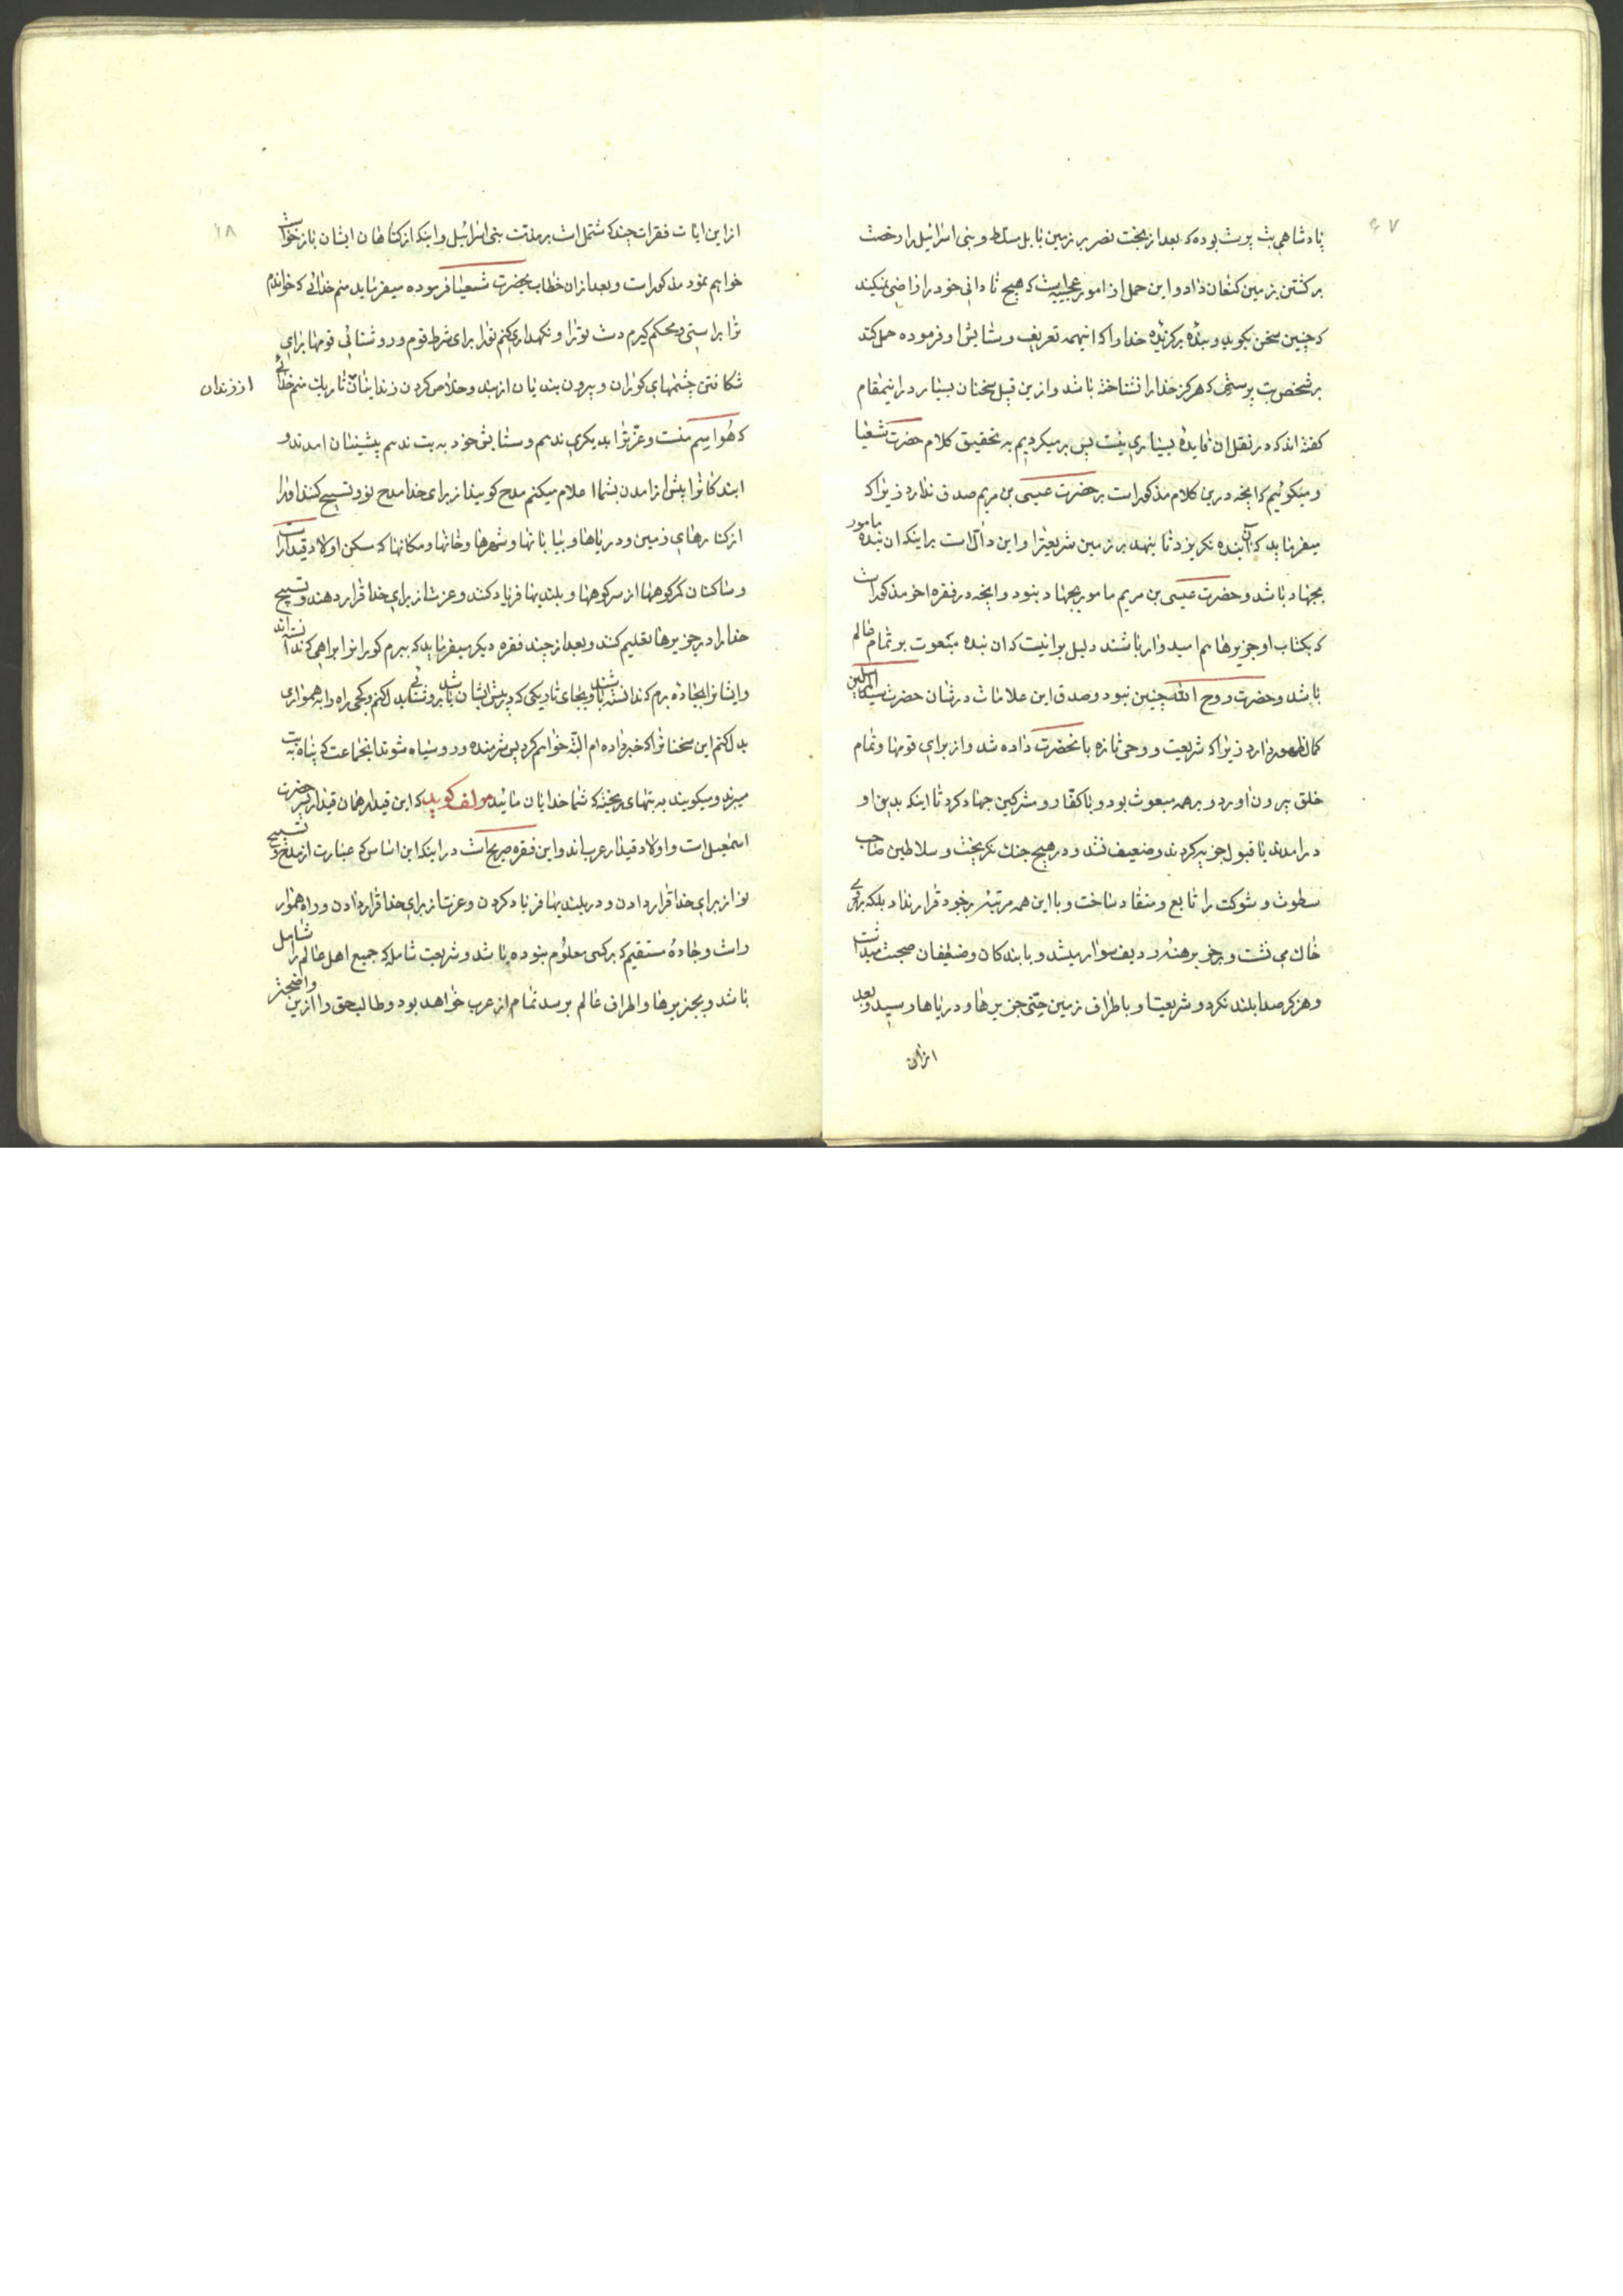 ۶۷
پادشاهی بت پرست بوده که بعد از بخت نصر بر زمین بابل مسلط و بنی اسرائیل را رخصت
برگشتن بزمین کنعان داد و این حمل از امور عجیبه‌ایست که هیچ نادانی خود را راضی نمیکند
که چنین سخن بگوید و بنده برگزیده خدا را که اینهمه تعریف و ستایش او فرموده حمل کند
بر شخص بت پرستی که هرگز خدا را نشناخته باشد و ازین قبیل سخنان بسیار در اینمقام
گفته‌اند که در نقل ان فایده بسیاری نیست پس بر میگردیم به تحقیق کلام حضرت شعیا
و میگوئیم که انچه درین کلام مذکور است بر حضرت عیسی بن مریم صدق ندارد زیرا که
میفرماید که آن بنده نگریزد تا بنهد بر زمین شریعترا و این دالّ است بر اینکه ان بنده مامور
بجهاد باشد و حضرت عیسی بن مریم مامور بجهاد نبود و انچه در فقره اخر مذکور است
که بکتاب او جزیرها هم امیدوار باشند دلیل بر انیست که ان بنده مبعوث بر تمام عالم
باشد و حضرت روح الله چنین نبود و صدق این علامات در شان حضرت سید المرسلین
کمال ظهور دارد زیرا که شریعت و وحی تازه بانحضرت داده شد و از برای قومها و تمام
خلق بیرون اورد و بر همه مبعوث بود و با کفار و مشرکین جهاد کرد تا اینکه بدین او
درامدند یا قبول جزیه کردند و ضعیف نشد و در هیچ جنک نگریخت و سلاطین صاحب
سطوت و شوکت را تابع و منقاد ساخت و با این همه مرتبه بر خود قرار نداد بلکه بر روی
خاک می نشست و بر خر برهنه و ردیف سوار میشد و با بندکان و ضعیفان صحبت میداشت
و هرگز صدا بلند نکرد و شریعت او باطراف زمین حتی جزیرها و دریاها رسید و بعد
ازان
۶۸
از این ایات فقرات چند که مشتمل است بر مذمت بنی اسرائیل و اینکه از گناهان ایشان بازخواست
خواهم نمود مذکور است و بعد ازان خطاب بحضرت شعیا فرموده میفرماید منم خدائی که خواندم
ترا براستی و محکم گیرم دست تو را و نگهداری کنم تو را برای شرط قوم و روشنائی قومها برای
شکافتن چشمهای کوران و بیرون بندیان از بند و خلاص کردن زندانیان تاریک منم خدائی
از زندان
که هُوا سیم منست و عزّتم را بدیگری ندهم و ستایش خود به بت ندهم پیشینیان امدند و
ایندکانرا پیش از امدن بشما اعلام میکنم مدح گویید از برای خدا مدح نو و تسبیح کنند او را
از کنارهای زمین و دریاها و بیابانها و شهرها و خانها و مکانها که مسکن اولاد قیدار است
و ساکنان کمر کوهها از سر کوهها و بلندیها فریاد کنند و عزت از برای خدا قرار دهند و تسبیح
خدا را در جزیرها تعلیم کنند و بعد از چند فقره دیگر میفرماید که ببرم کورانرا براهی که ندانسته‌اند
و ایشانرا بجاده برم که ندانسته باشند و بجای تاریکی که در پیش ایشان باشد بروشنائی بدل کنم و کجی راه را به همواری
بدل کنم این سخنانرا که خبر داده ام البته خواهم کرد پس شرمنده و روسیاه شوند انجماعت که پناه به بت
میبرند و میگویند به بتهای ریخته که شما خدایان مائید مولف گوید که این قیدار همان قیدار پسر حضرت
اسمعیل است و اولاد قیدار عرب‌اند و این فقره صریح است در اینکه این اساس که عبارت از مدح و تسبیح
نو از برای خدا قرار دادن و در بلندیها فریاد کردن و عزت از برای خدا قرار دادن و راه هموار
راست و جادهٔ مستقیم که بر کسی معلوم نبوده باشد و شریعت شامله که جمیع اهل عالم را شامل
باشد و بجزیرها و اطراف عالم برسد تمام از عرب خواهد بود و طالب حق را از این واضحتر